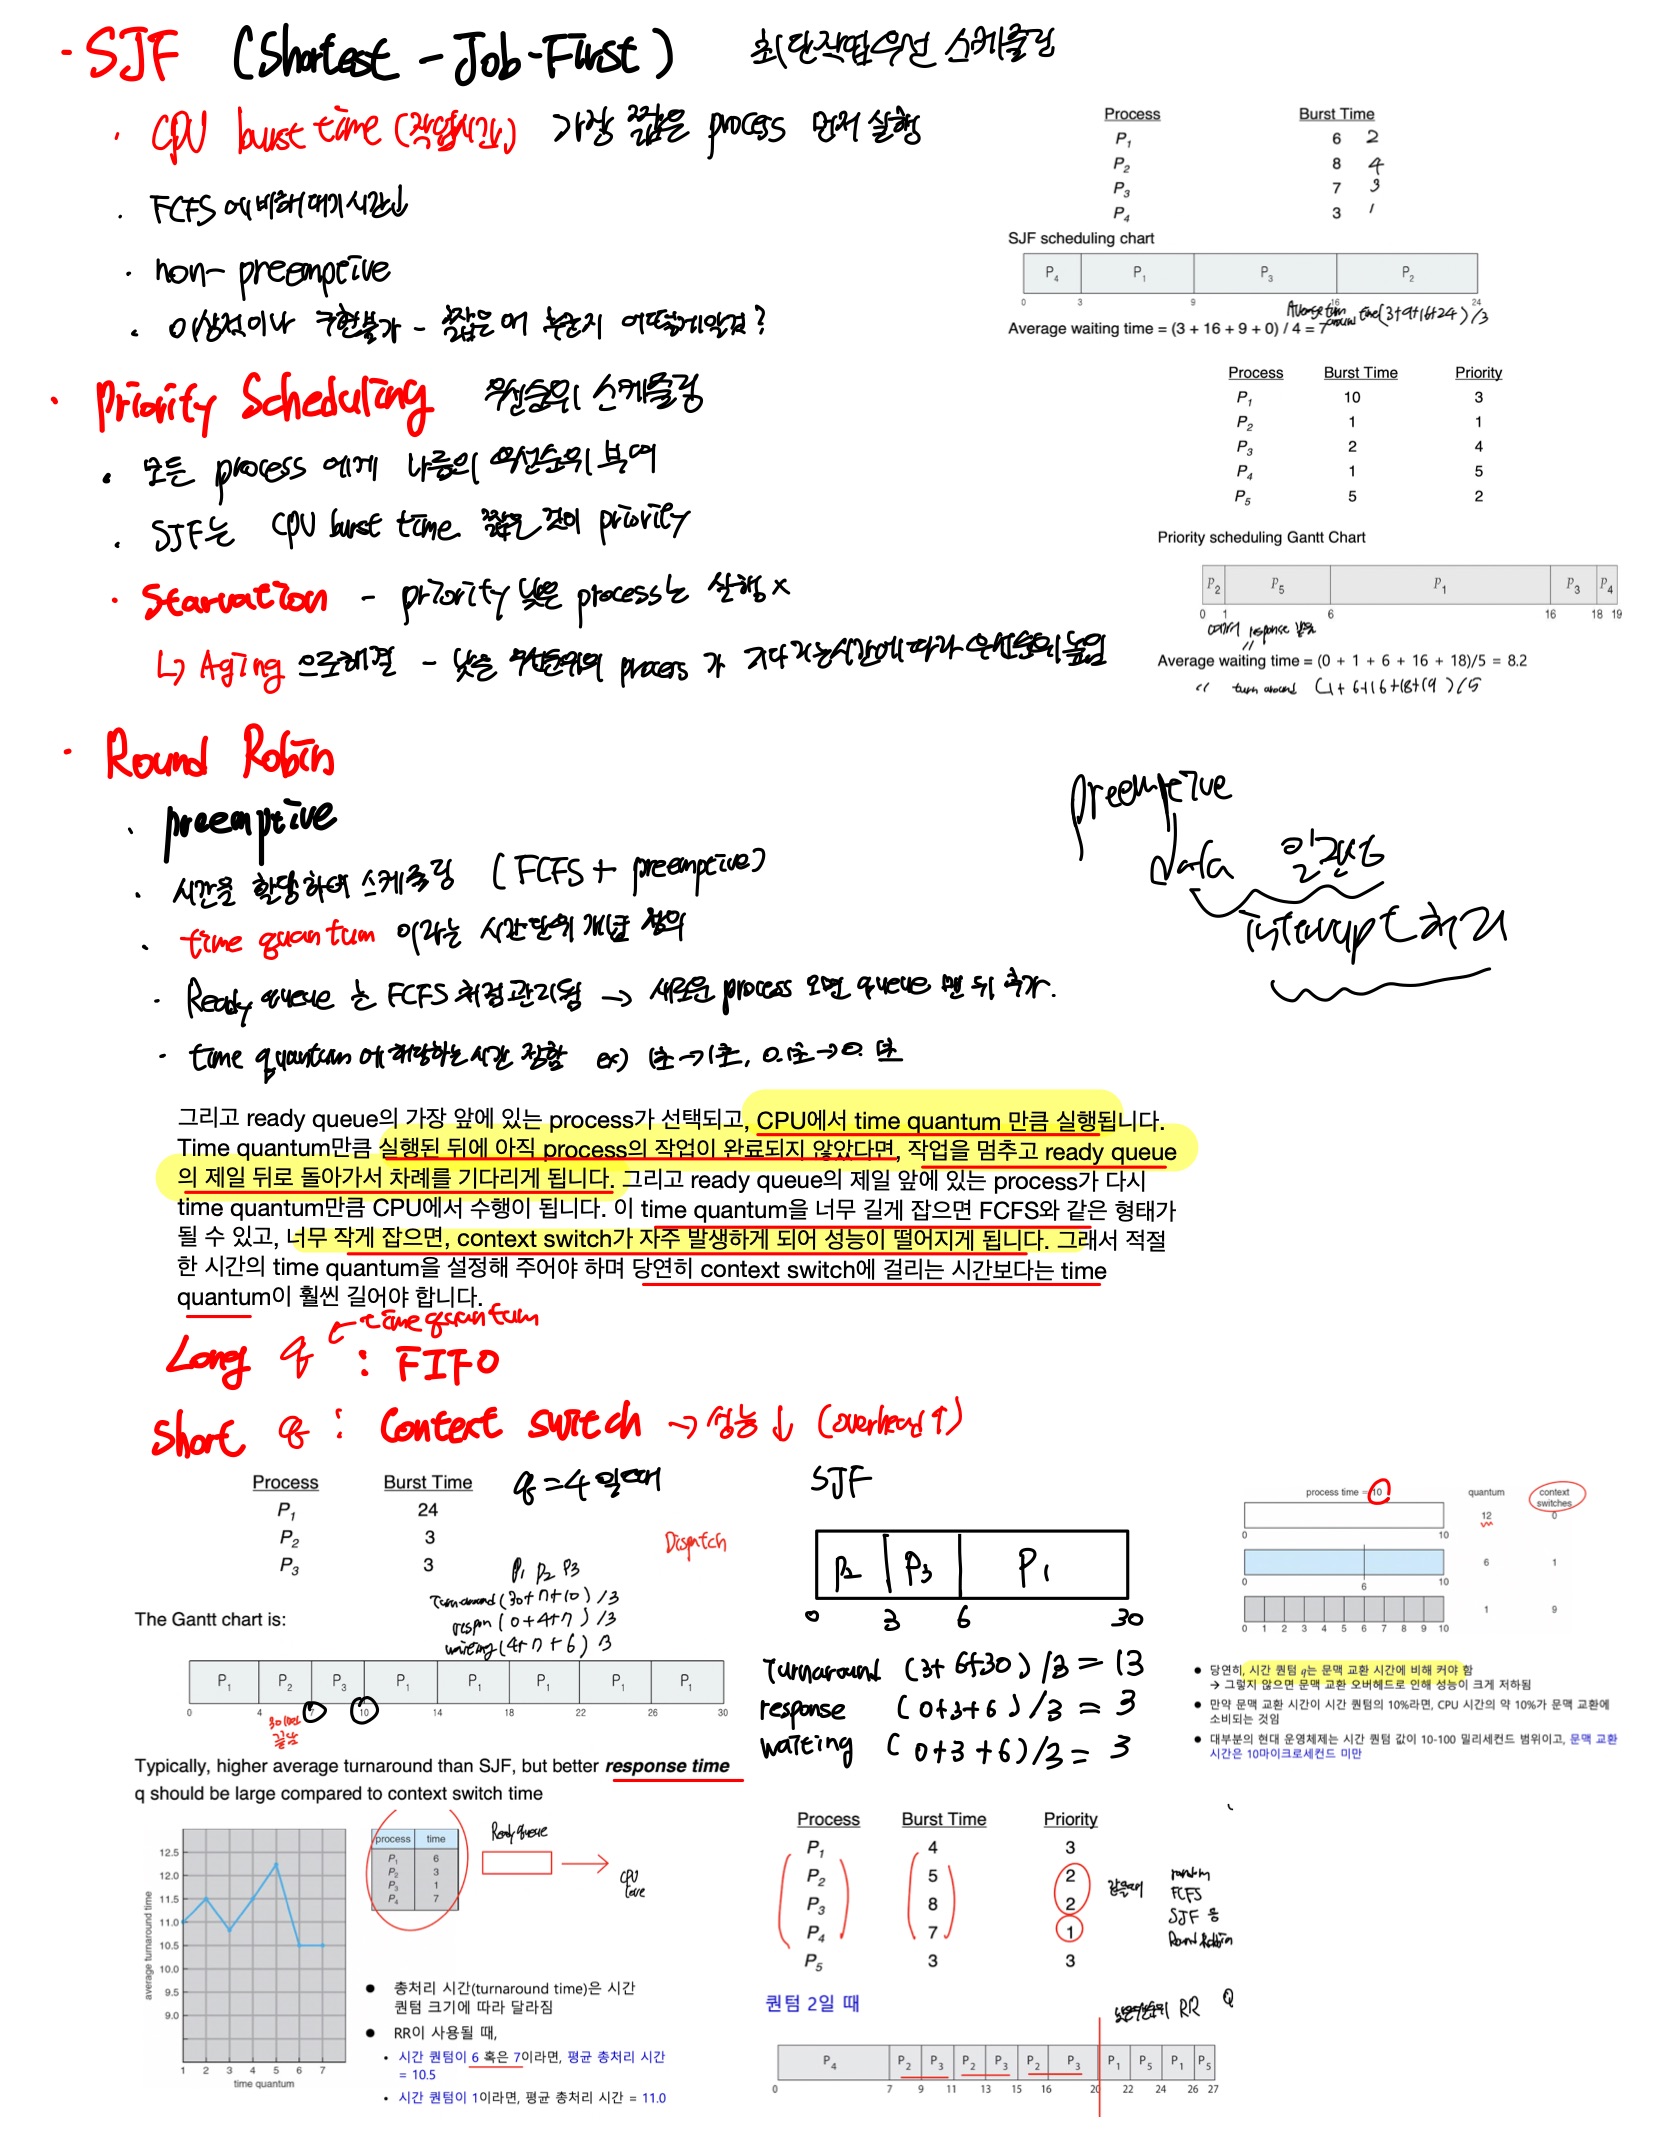 · SJF (Shortest-Job-First) 최단작업우선 스케줄링
· CPU burst time (작업시간) 가장 짧은 process 먼저 실행
· FCFS에 비해 대기시간↓
· non-preemptive
· 이상적이나 구현불가 - 짧은 어떻게 알겠?
Process Burst Time
P1 6 2
P2 8 4
P3 7 3
P4 3 1
SJF scheduling chart
P4 P1 P3 P2
0 3 9 16 24
Average turn around time (3+9+16+24)/3
Average waiting time = (3 + 16 + 9 + 0) / 4 = 7
· Priority Scheduling 우선순위 스케줄링
· 모든 process에게 나름의 우선순위 부여
· SJF는 CPU burst time 짧은 것이 priority
· Starvation - priority 낮은 process는 실행 x
↳ Aging 으로 해결 - 낮은 우선순위의 process가 기다리는시간에 따라 우선순위 높임
Process Burst Time Priority
P1 10 3
P2 1 1
P3 2 4
P4 1 5
P5 5 2
Priority scheduling Gantt Chart
P2 P5 P1 P3 P4
0 1 6 16 18 19
여기서 response 같음
Average waiting time = (0 + 1 + 6 + 16 + 18)/5 = 8.2
" turn around (1+6+16+18+19)/5
· Round Robin
· preemptive
· 시간을 할당하여 스케줄링 (FCFS + preemptive)
· time quantum 이라는 시간단위 개념 정의
· Ready queue 는 FCFS처럼 관리됨 → 새로운 process 오면 queue 맨 뒤 추가.
· time quantum에 해당하는 시간 정함 ex) 1초→1초, 0.1초→0.1초
preemptive
data 일관성
interrupt 처리
그리고 ready queue의 가장 앞에 있는 process가 선택되고, CPU에서 time quantum 만큼 실행됩니다.
Time quantum만큼 실행된 뒤에 아직 process의 작업이 완료되지 않았다면, 작업을 멈추고 ready queue
의 제일 뒤로 돌아가서 차례를 기다리게 됩니다. 그리고 ready queue의 제일 앞에 있는 process가 다시
time quantum만큼 CPU에서 수행이 됩니다. 이 time quantum을 너무 길게 잡으면 FCFS와 같은 형태가
될 수 있고, 너무 작게 잡으면, context switch가 자주 발생하게 되어 성능이 떨어지게 됩니다. 그래서 적절
한 시간의 time quantum을 설정해 주어야 하며 당연히 context switch에 걸리는 시간보다는 time
quantum이 훨씬 길어야 합니다.
←time quantum
Long q : FIFO
Short q : Context switch → 성능↓ (overhead↑)
Process Burst Time
P1 24
P2 3
P3 3
q=4 일때
Dispatch
P1 P2 P3
Turnaround (30+7+10)/3
respon (0+4+7)/3
waiting (4+7+6) 3
The Gantt chart is:
P1 P2 P3 P1 P1 P1 P1 P1
0 4 7 10 14 18 22 26 30
Typically, higher average turnaround than SJF, but better response time
q should be large compared to context switch time
SJF
P2 P3 P1
0 3 6 30
Turnaround (3+6+30)/3 = 13
response (0+3+6)/3 = 3
waiting (0+3+6)/3 = 3
process time = 10 quantum context switches
12 0
0 10
6 1
0 6 10
1 9
0 1 2 3 4 5 6 7 8 9 10
● 당연히, 시간 퀀텀 q는 문맥 교환 시간에 비해 커야 함
→ 그렇지 않으면 문맥 교환 오버헤드로 인해 성능이 크게 저하됨
● 만약 문맥 교환 시간이 시간 퀀텀의 10%라면, CPU 시간의 약 10%가 문맥 교환에
소비되는 것임
● 대부분의 현대 운영체제는 시간 퀀텀 값이 10-100 밀리세컨드 범위이고, 문맥 교환
시간은 10마이크로세컨드 미만
average turnaround time
12.5
12.0
11.5
11.0
10.5
10.0
9.5
9.0
1 2 3 4 5 6 7
time quantum
process time
P1 6
P2 3
P3 1
P4 7
Ready queue
CPU
● 총처리 시간(turnaround time)은 시간
퀀텀 크기에 따라 달라짐
● RR이 사용될 때,
• 시간 퀀텀이 6 혹은 7이라면, 평균 총처리 시간
= 10.5
• 시간 퀀텀이 1이라면, 평균 총처리 시간 = 11.0
Process Burst Time Priority
P1 4 3
P2 5 2
P3 8 2
P4 7 1
P5 3 3
같을때
random
FCFS
SJF 등
Round Robin
퀀텀 2일 때
낮은우선순위 RR Q
P4 P2 P3 P2 P3 P2 P3 P1 P5 P1 P5
0 7 9 11 13 15 16 20 22 24 26 27